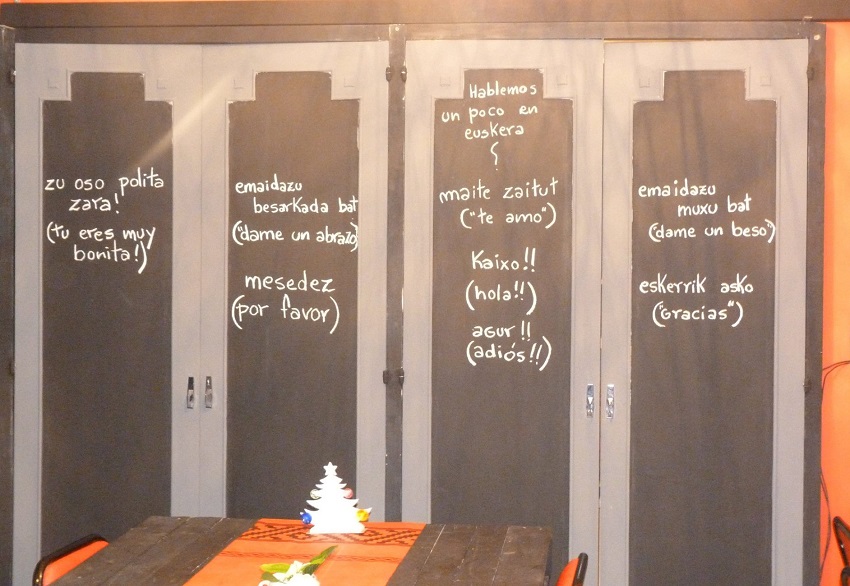 zu oso polita
zara!
(tu eres muy
bonita!)
emaidazu
besarkada bat
("dame un abrazo)
mesedez
(por favor)
Hablemos
un poco en
euskera
maite zaitut
("te amo")
Kaixo!!
(hola!!)
agur!!
(adiós!!)
emaidazu
muxu bat
("dame un beso")
eskerrik asko
("Gracias")